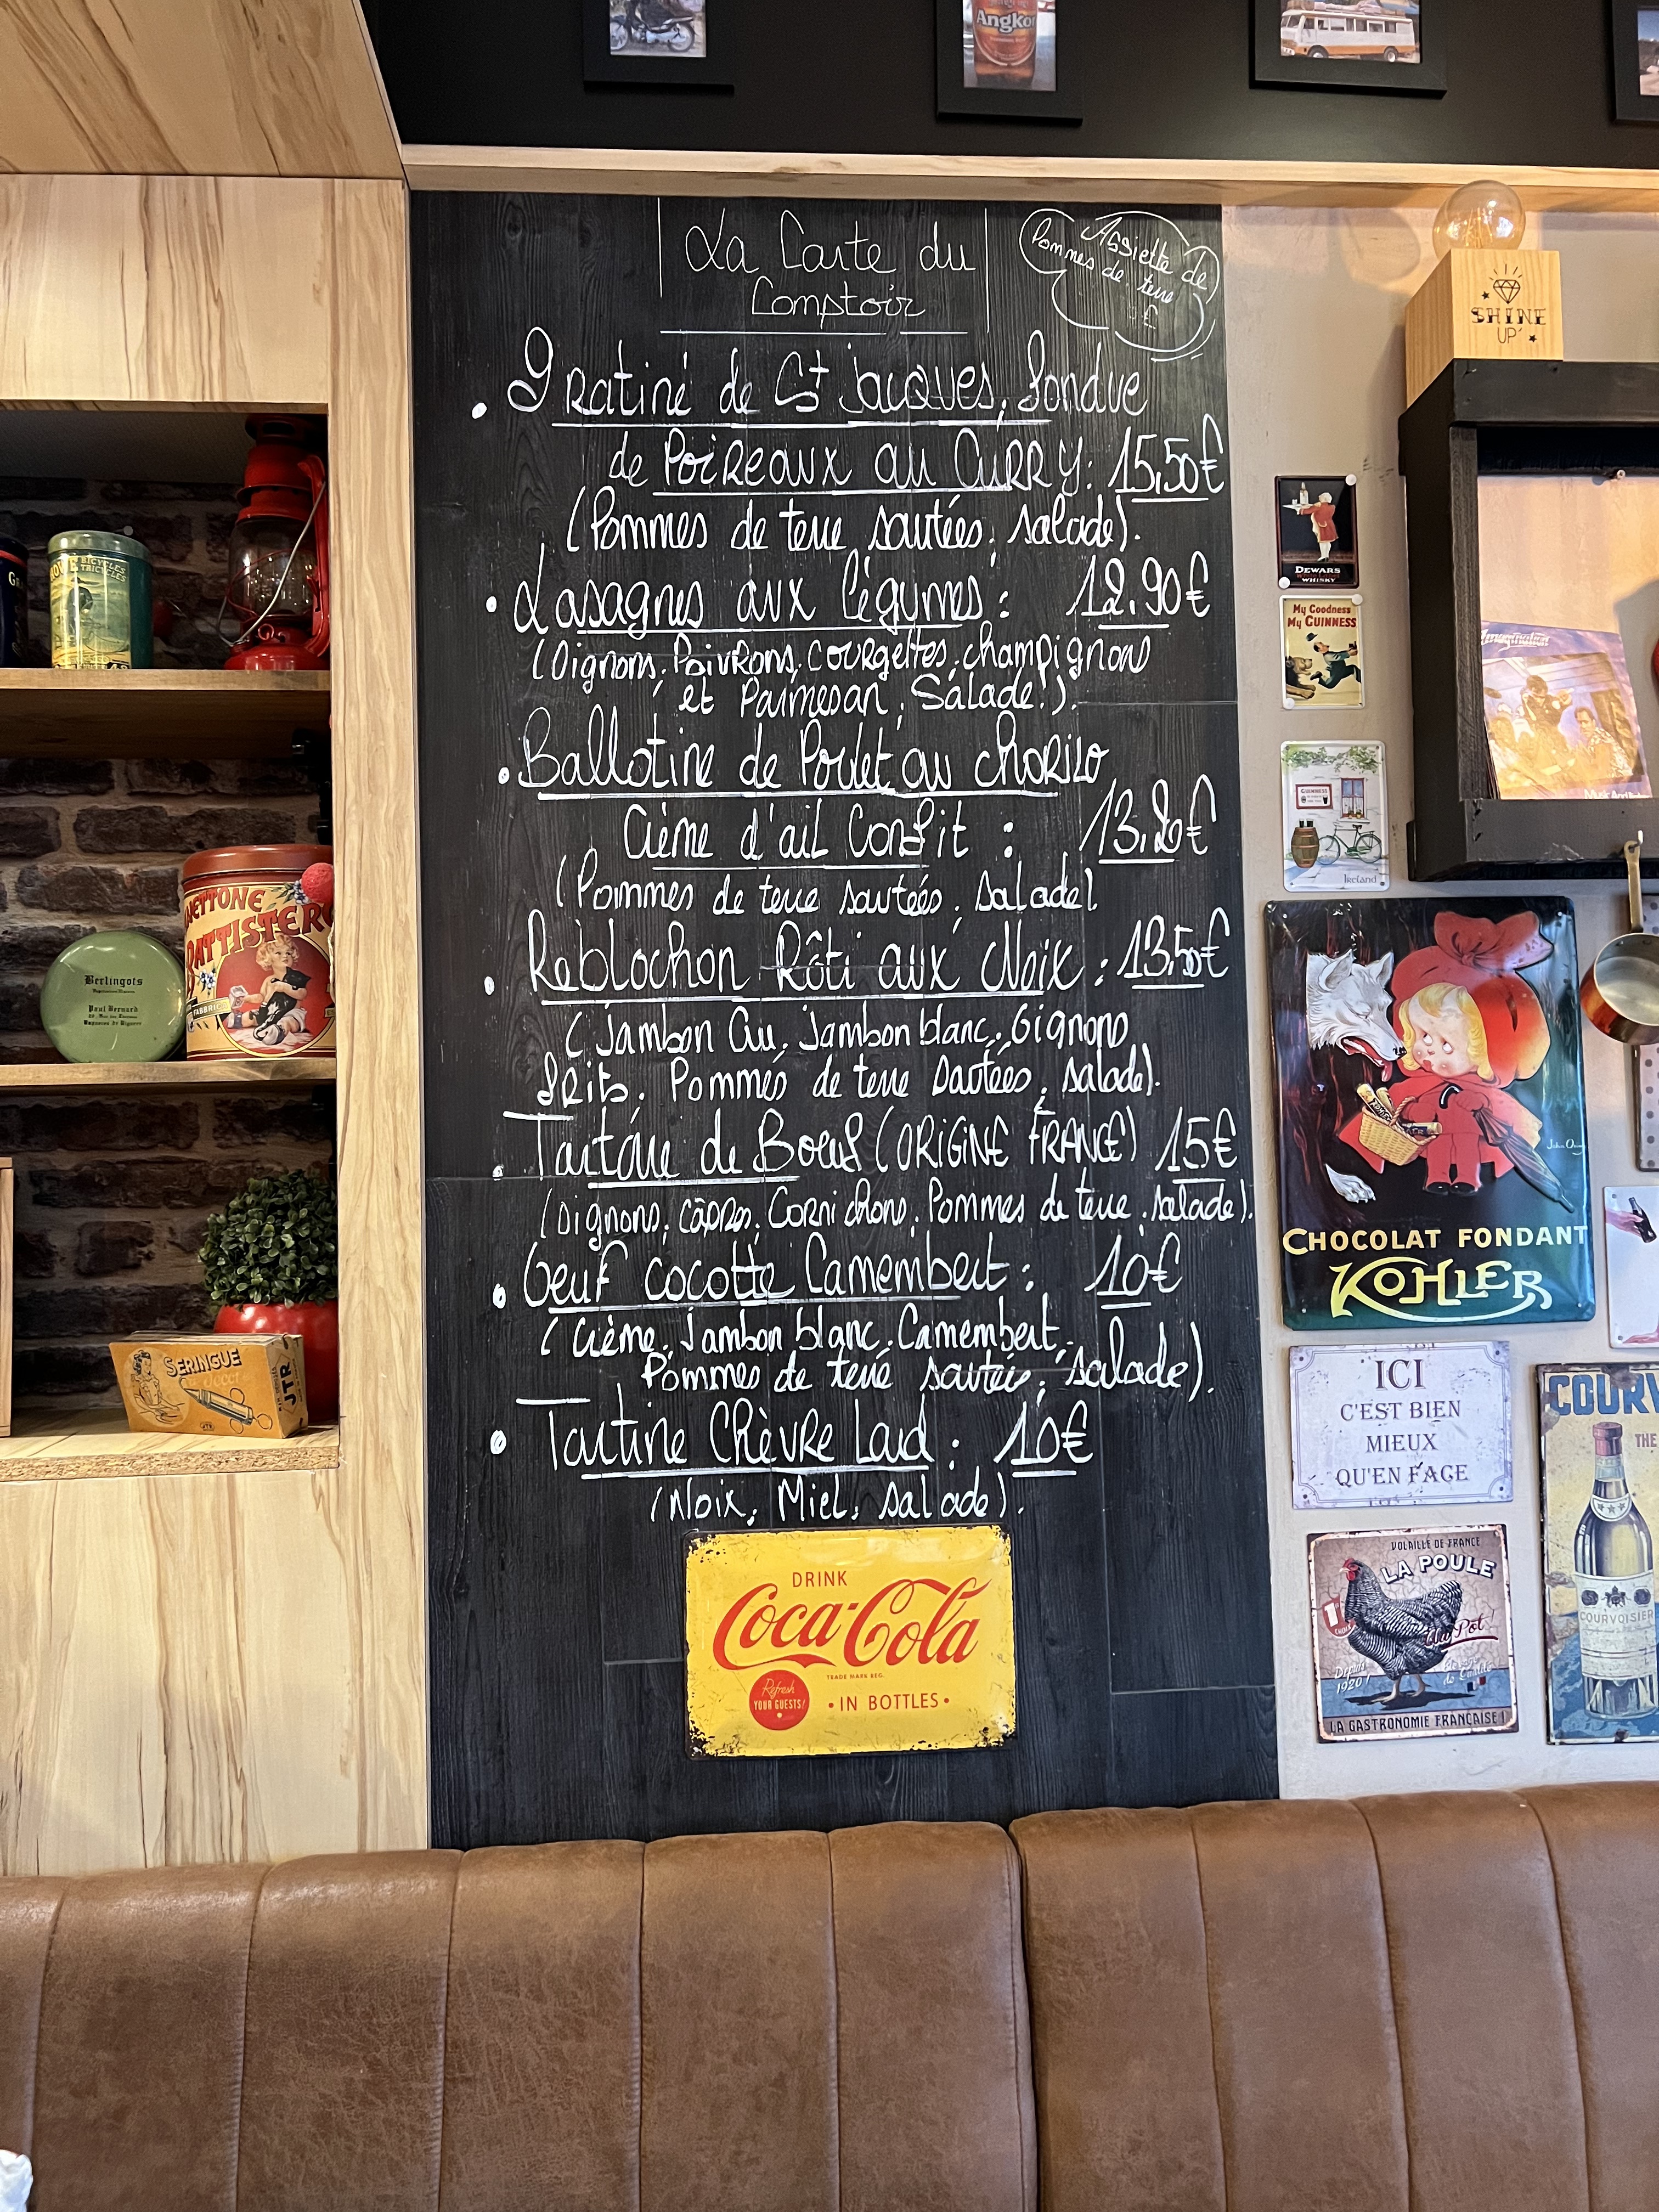 Angkor
La Carte du
Comptoir
Assiette de
Pommes de terre
€
SHINE
UP
• Gratiné de St Jacques, fondue
de Poireaux au Curry : 15,50€
(Pommes de terre sautées, salade).
• Lasagnes aux légumes : 12,90€
(Oignons, Poivrons, courgettes, champignons
et Parmesan, Salade).
• Ballotine de Poulet au chorizo
Crème d'ail Confit : 13,20€
(Pommes de terre sautées, salade).
• Reblochon Rôti aux Noix : 13,50€
(Jambon Cru, Jambon blanc, Oignons
frits, Pommes de terre sautées, salade).
• Tartare de Boeuf (ORIGINE FRANCE) 15€
(Oignons, câpres, Cornichons, Pommes de terre, salade).
• Oeuf cocotte Camembert : 10€
(Crème, Jambon blanc, Camembert,
Pommes de terre sautées, salade).
• Tartine Chèvre Lard : 10€
(Noix, Miel, salade).
DRINK
Coca-Cola
TRADE MARK REG.
Refresh
YOUR GUESTS!
• IN BOTTLES •
BICYCLES
TRICYCLES
BATTISTERO
FABBRIC
Berlingots
Paul Bernard
SERINGUE
JTR
DEWARS
WHISKY
My Goodness
My GUINNESS
GUINNESS
IRELAND
Imagination
CHOCOLAT FONDANT
KOHLER
ICI
C'EST BIEN
MIEUX
QU'EN FACE
VOLAILLE DE FRANCE
LA POULE
Au Pot !
Depuis
1920
LA GASTRONOMIE FRANÇAISE !
COURV
THE
COURVOISIER